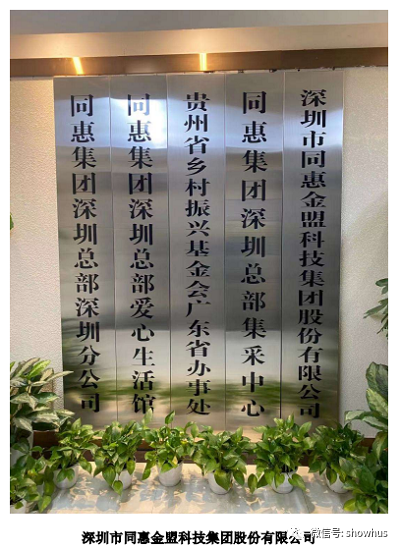 深圳市同惠金盟科技集团股份有限公司
同惠集团深圳总部集采中心
贵州省乡村振兴基金会广东省办事处
同惠集团深圳总部爱心生活馆
同惠集团深圳总部深圳分公司
微信号: showhus
深圳市同惠金盟科技集团股份有限公司